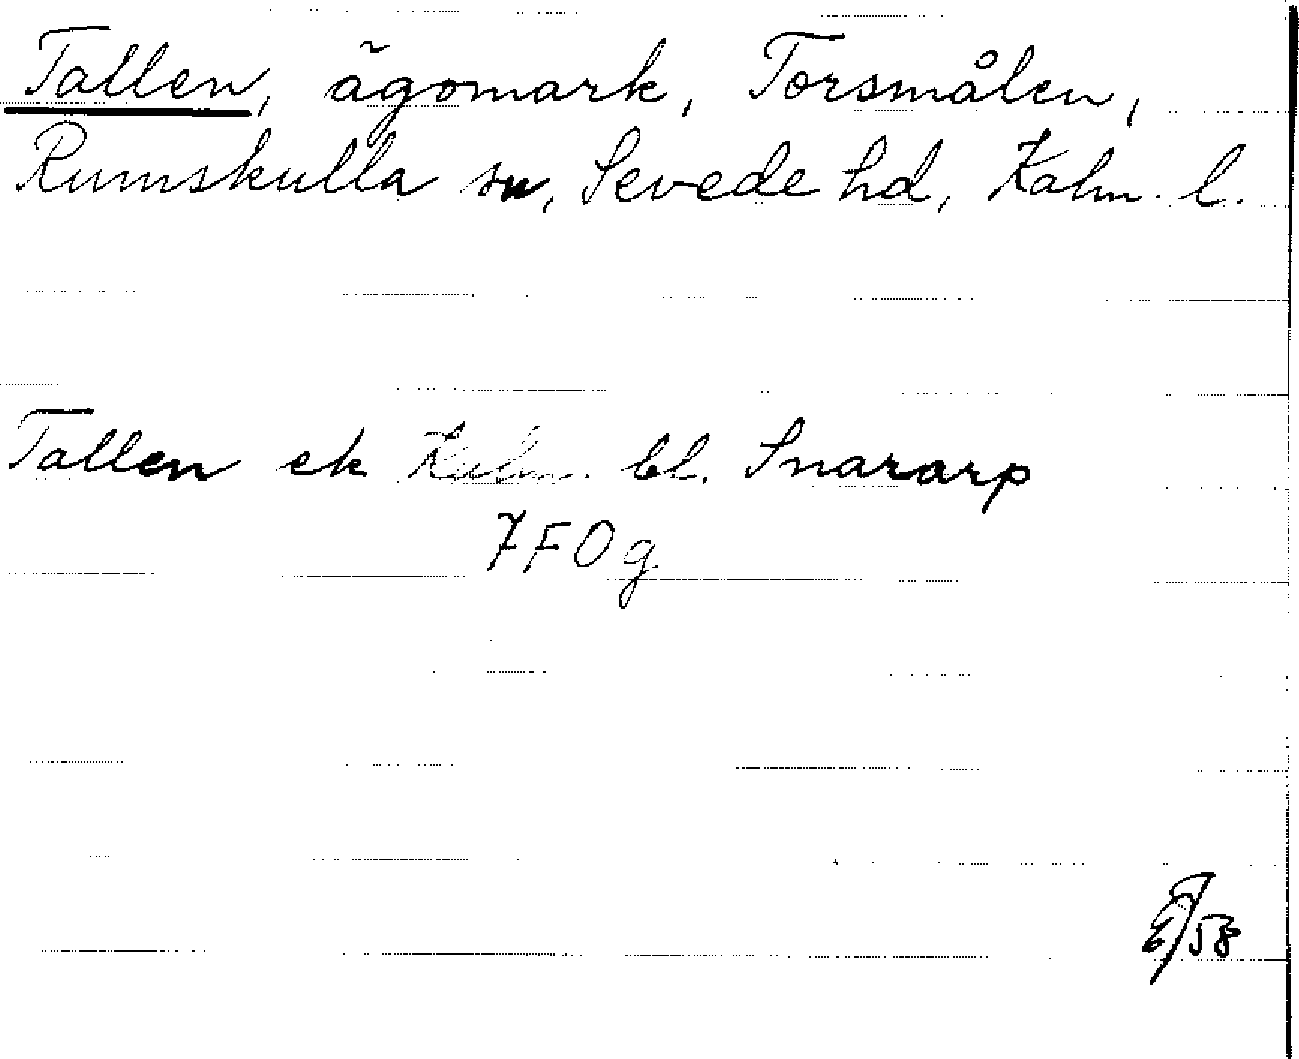 Tallen, ägomark, Torsmålen,
Rumskulla sn, Sevede hd, Kalm. l.
Tallen ek Kalm. bl. Snararp
7F0g
/58